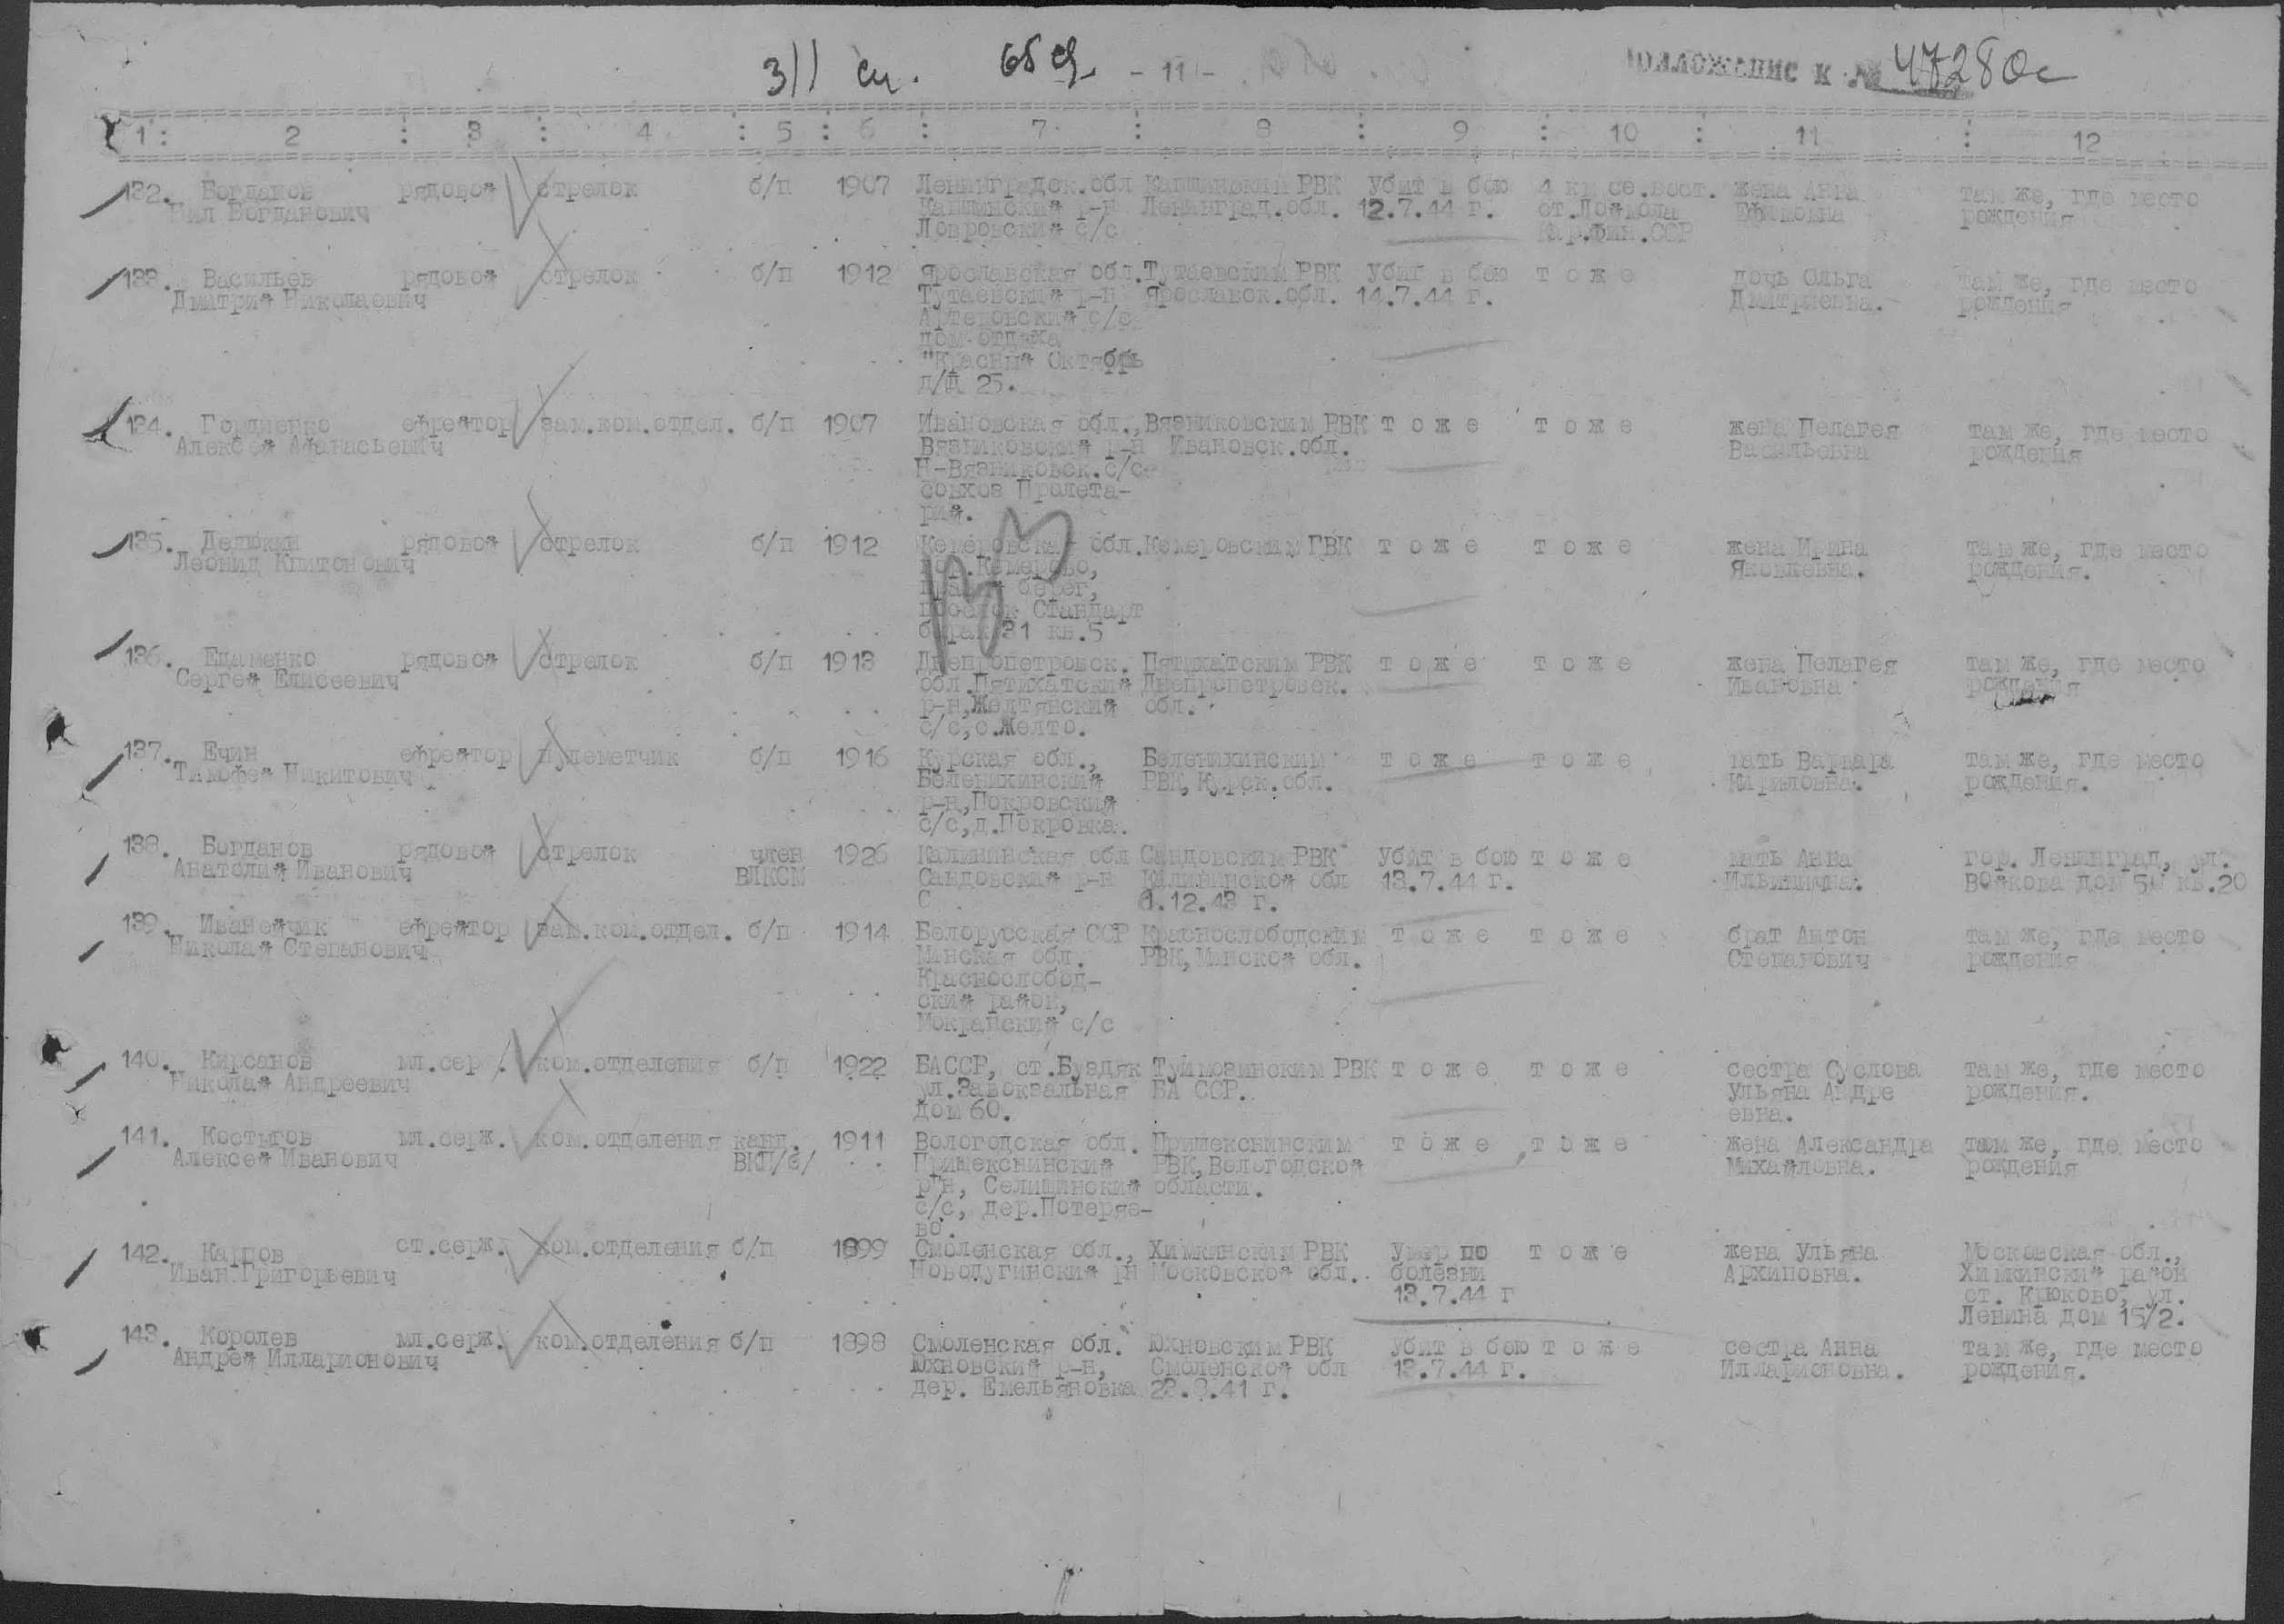 311 сп. 65 сд. - 11 - К № 47280с
1 : 2 : 3 : 4 : 5 : 6 : 7 : 8 : 9 : 10 : 11 : 12
132. Богданов рядовой стрелок б/п 1907 Ленинградск.обл Капшинским РВК Убит в бою 4 км се.вост. жена Анна там же, где место
Богданович Капшинский р-н Ленинград.обл. 12.7.44 г. от.Лоймола Ефимовна рождения
с/с Кар.фин.ССР
133. Васильев рядовой стрелок б/п 1912 Ярославская обл. Тутаевским РВК Убит в бою т о ж е дочь Ольга там же, где место
Дмитрий Николаевич Тутаевский р-н Ярославск.обл. 14.7.44 г. Дмитриевна. рождения
с/с
дом отдыха
"Красный Октябрь
п/я 25.
134. Гордиенко ефрейтор зам.ком.отдел. б/п 1907 Ивановская обл., Вязниковским РВК т о ж е т о ж е жена Пелагея там же, где место
Алексей Афанасьевич Вязниковский р-н Ивановск.обл. Васильевна рождения
Н-Вязниковск.с/с
совхоз Пролета-
рий.
135. Делюкин рядовой стрелок б/п 1912 Кемеровская обл. Кемеровским ГВК т о ж е т о ж е жена Ирина там же, где место
Леонид гор.Кемерово, Яковлевна. рождения.
берег,
Стандарт
барак 31 кв.5
136. Ецаменко рядовой стрелок б/п 1913 Днепропетровск. Пятихатским РВК т о ж е т о ж е жена Пелагея там же, где место
Сергей Елисеевич обл.Пятихатский Днепропетровск. Ивановна рождения
р-н,Желтянский обл.
с/с,с.Желто.
137. Ечин ефрейтор пулеметчик б/п 1916 Курская обл., Беленихинским т о ж е т о ж е мать Варвара там же, где место
Тимофей Никитович Беленихинский РВК, Курск.обл. Кириловна. рождения.
р-н,Покровский
с/с,д.Покровка.
138. Богданов рядовой стрелок член 1926 Калининская обл Сандовским РВК Убит в бою т о ж е мать Анна гор. Ленинград, ул.
Анатолий Иванович ВЛКСМ Сандовский р-н Калининской обл 13.7.44 г. Ильинична. Войкова дом 50 кв.20
С 1.12.43 г.
139. Иванейчик ефрейтор зам.ком.отдел. б/п 1914 Белорусская ССР Краснослободским т о ж е т о ж е брат Антон там же, где место
Николай Степанович Минская обл. РВК, Минской обл. Степанович рождения
Краснослобод-
ский район,
Мокранский с/с
140. Кирсанов мл.сер. ком.отделения б/п 1922 БАССР, ст.Буздяк Туймозинским РВК т о ж е т о ж е сестра Суслова там же, где место
Николай Андреевич ул.Завокзальная БА ССР. Ульяна Андре рождения.
дом 60. евна.
141. Костыгов мл.серж. ком.отделения канд. 1911 Вологодская обл. Пришекснинским т о ж е т о ж е жена Александра там же, где место
Алексей Иванович ВКП/б/ Пришекснинский РВК, Вологодской Михайловна. рождения
р-н, Селищинский области.
с/с, дер.Потеряе-
во.
142. Карпов ст.серж. ком.отделения б/п 1899 Смоленская обл., Химкинским РВК Умер по т о ж е жена Ульяна Московская обл.,
Иван Григорьевич Новодугинский рн Московской обл. болезни Архиповна. Химкинский район
13.7.44 г ст. Крюково, ул.
Ленина дом 15/2.
143. Королев мл.серж. ком.отделения б/п 1898 Смоленская обл. Юхновским РВК Убит в бою т о ж е сестра Анна там же, где место
Андрей Илларионович Юхновский р-н, Смоленской обл 13.7.44 г. Илларионовна. рождения.
дер. Емельяновка .41 г.